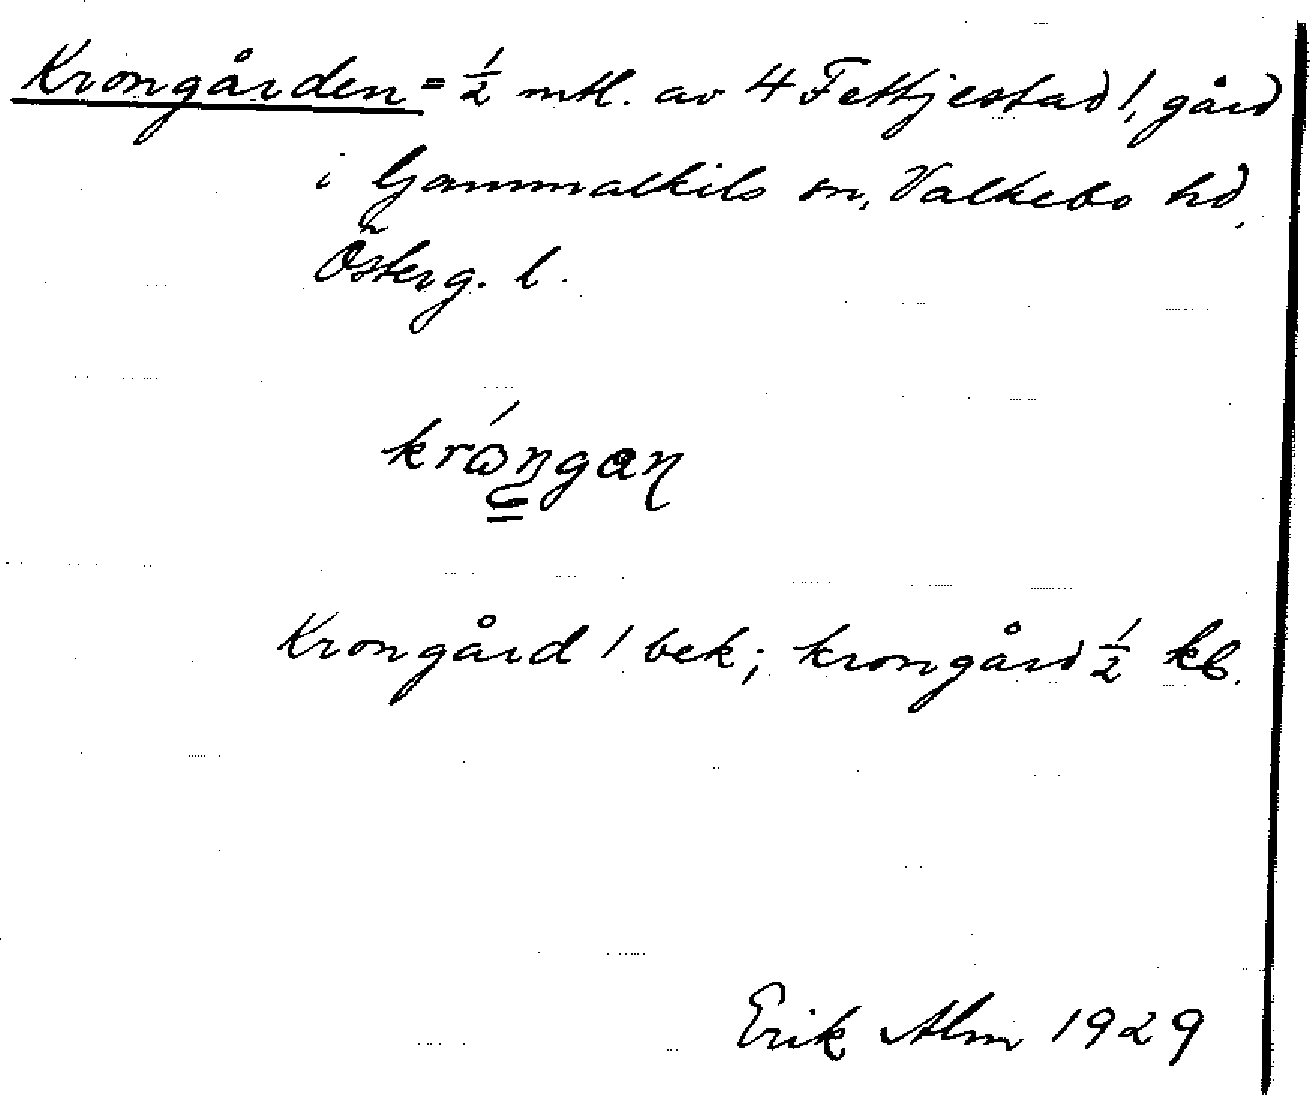 Krongården = ½ mtl. av 4 Fettjestad 1, gård
i Gammalkils sn, Valkebo hd,
Österg. l.
krǿngan
Krongård 1 bek; krongård ½ kb.
Erik Alm 1929